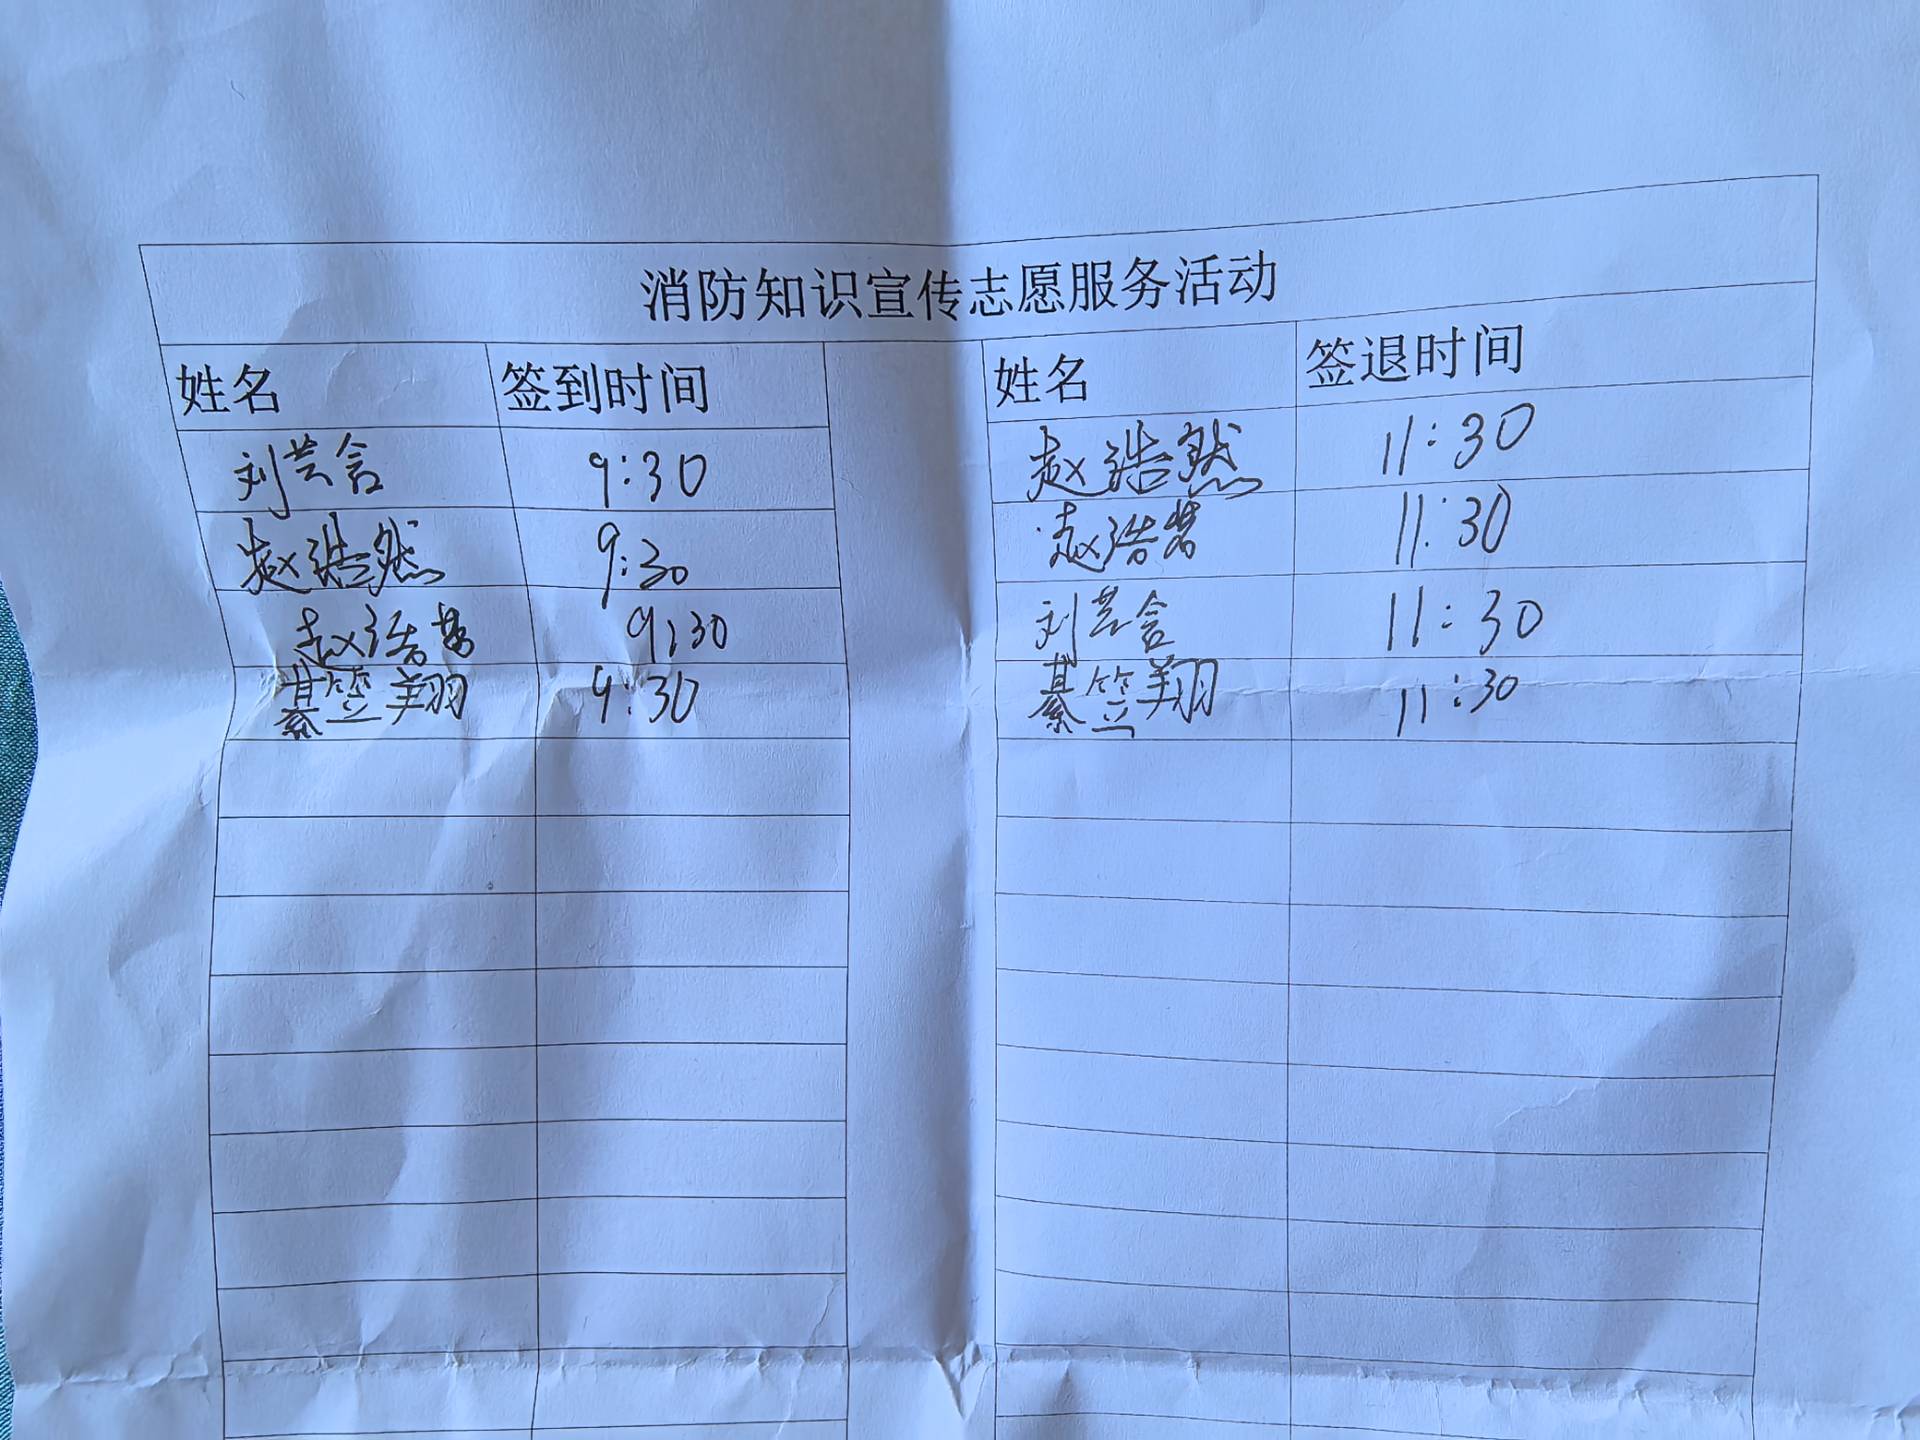 消防知识宣传志愿服务活动
姓名 签到时间 姓名 签退时间
刘芸含 9:30 赵浩然 11:30
赵浩然 9:30 赵浩茗 11:30
赵浩茗 9:30 刘芸含 11:30
綦竺翔 9:30 綦竺翔 11:30